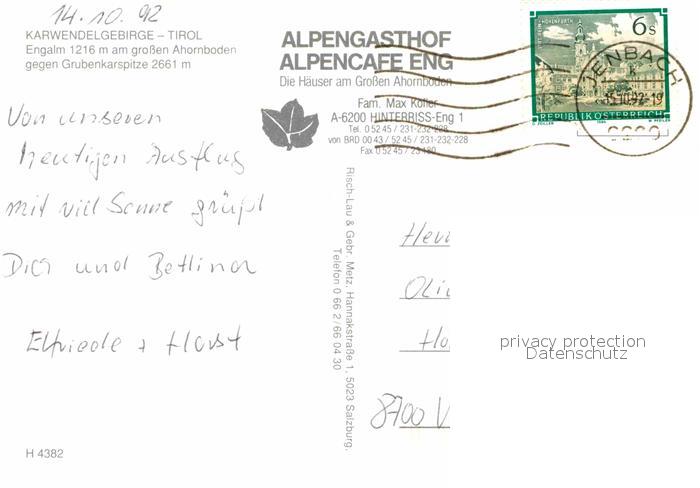 14.10.92
KARWENDELGEBIRGE – TIROL
Engalm 1216 m am großen Ahornboden
gegen Grubenkarspitze 2661 m
Von unseren
heutigen Ausflug
mit viel Sonne grüßt
Dich und Bettina
Elfriede + Horst
H 4382
ALPENGASTHOF
ALPENCAFE ENG
Die Häuser am Großen Ahornboden
Fam. Max Kofler
A-6200 HINTERRISS-Eng 1
Tel. 0 52 45 / 231-232-228
von BRD 00 43 / 52 45 / 231-232-228
Fax 0 52 45 /
Risch-Lau & Gebr. Metz, Hannakstraße 1, 5023 Salzburg,
Telefon 0 66 2/66 04 30
6 s
REPUBLIK ÖSTERREICH
ENBACH
Oli
8700 W
privacy protection
Datenschutz